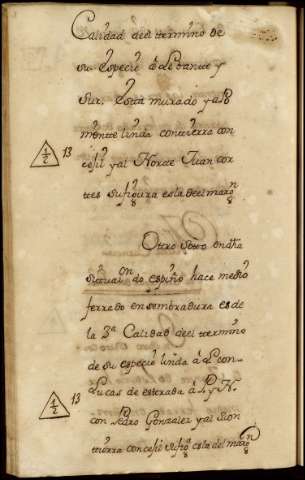 Calidad deel termino de
su especie â Lebante y
Sur, Esta murado y al P
mente linda con tierra con
cejil y al Norte Juan cor
1/2 13
tes su figura esta del margn
Otro Soto en dha
situazon do espiño hace medio
ferrado en sembradura es de
la 3a Calidad deel termino
de su especie linda â L con
Lucas de estrada â P y N.
1/2 13
con Pedro Gonzalez y al
tierra concejil su figa esta del margn